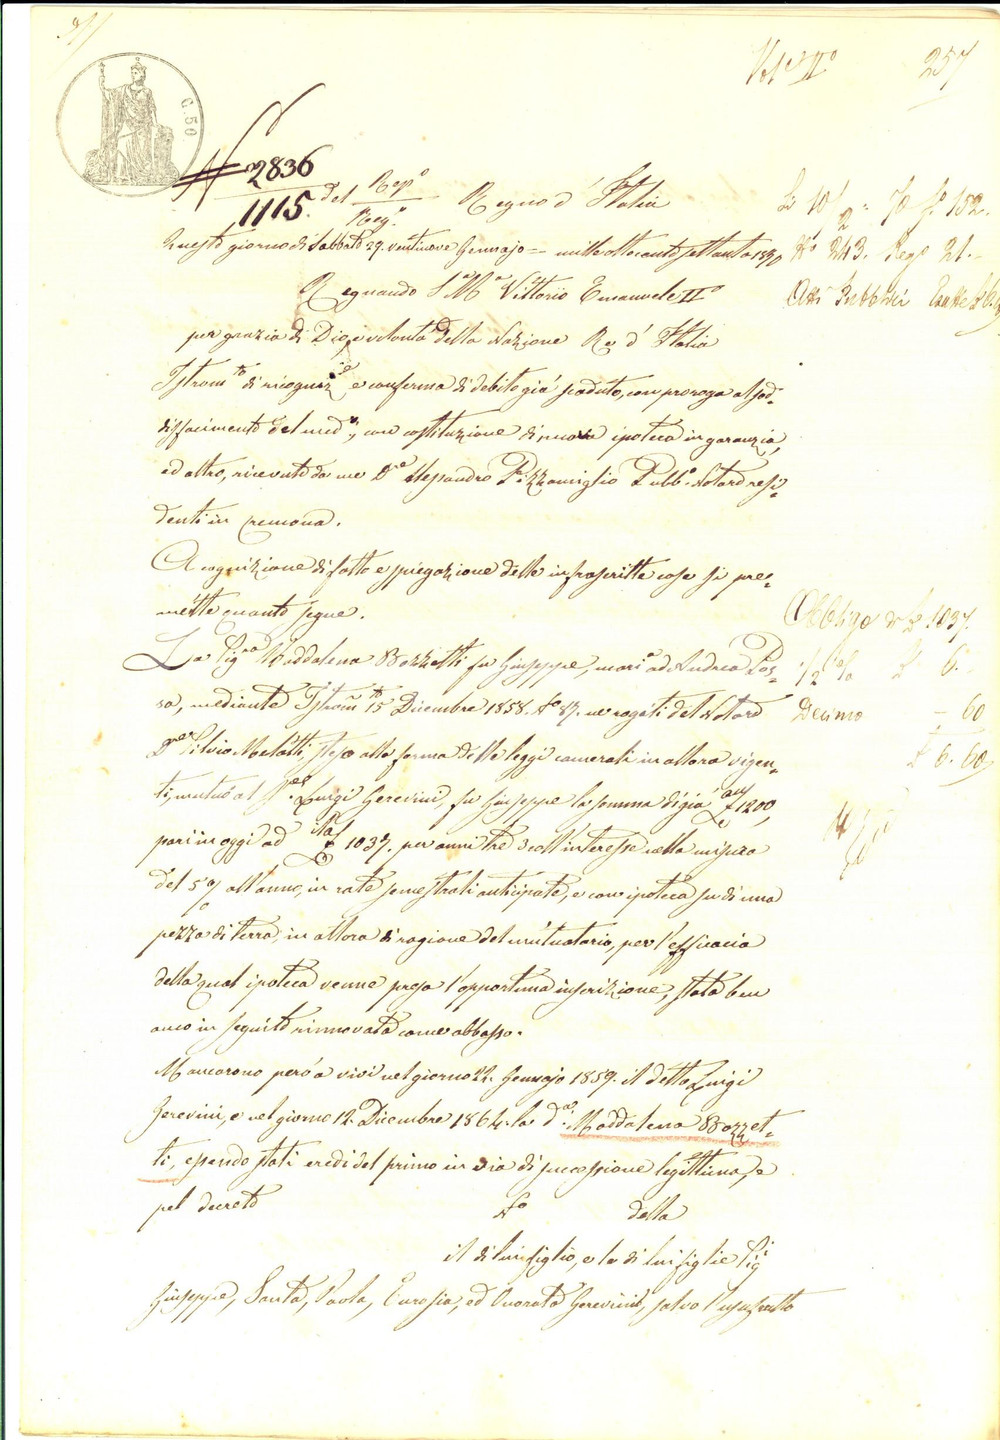 Vol.e II.o 257
C. 50
N 2836
1115. del Rep.o
Reg.o
Regno d'Italia
Questo giorno di Sabbato 29. ventinove Gennajo = mille ottocento settanta 1870
N.o 243. Reg.o 21.
Regnando S. M.a Vittorio Emanuele II.o
Atti Pubblici
per grazia di Dio, e volontà della Nazione Re d'Italia
Istrom.to di ricogniz.e e conferma di debito già scaduto, con proroga al sod=
disfacimento del med.o, con costituzione di nuova ipoteca in garanzia,
ed altro, ricevuto da me D.r Alessandro Pizzamiglio Pubb.o Notaro resi=
dente in Cremona.
A cognizione di fatto e spiegazione delle infrascritte cose si pre=
mette quanto segue.
Obbligo di £ 1037.
La Sig.ra Maddalena Bozzetti fu Giuseppe, mar.a ad Andrea
1/2 % £ 6. -
mediante Istrom.to 15 Dicembre 1858. N.o 87. ne' rogiti del Notaro
Decimo - 60
£ 6. 60
D.r Silvio Melotti, steso alla forma delle leggi camerali in allora vigen=
ti, mutuò al S.r Luigi Gerevini, fu Giuseppe la somma di già au £ 1200,
pari in oggi ad ita £ 1037. per anni tre coll'interesse nella misura
del 5 % all'anno, in rate semestrali anticipate, e con ipoteca su di una
pezza di terra, in allora di ragione del mutuatario, per l'efficacia
della qual ipoteca venne presa l'opportuna inscrizione, stata ben
anco in seguito rinnovata come abbasso.
Mancarono però a vivi nel giorno 22. Gennajo 1859. il detto Luigi
Gerevini, e nel giorno 12. Dicembre 1864. la d.a Maddalena Bozzet=
ti, essendo stati eredi del primo in via di successione legittima, e
pel decreto N.o della
il di lui figlio, e le di lui figlie Sig.i
Giuseppe, Santa, Paola, Eurosia, ed Onorata Gerevini, salvo l'usufrutto